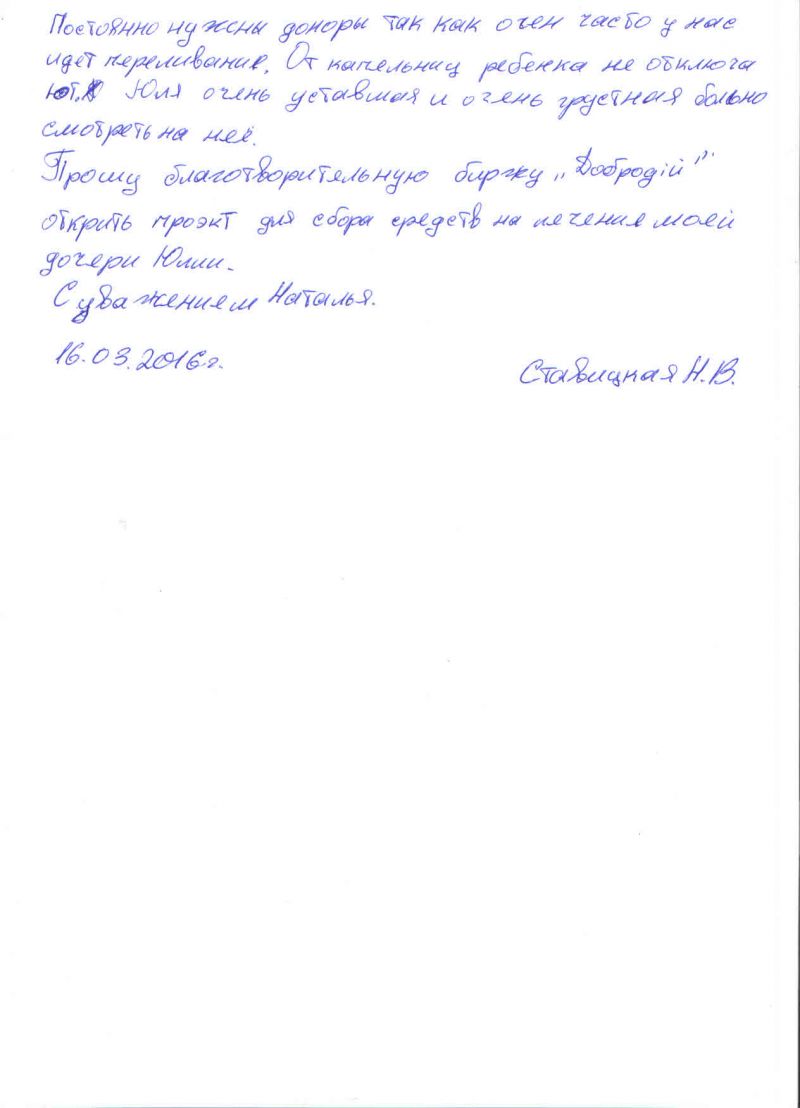 Постоянно нужны доноры так как очен часто у нас
идет переливание. От капельниц ребенка не отключа
ют. Юля очень уставшая и очень грустная больно
смотреть на неё.
Прошу благотворительную биржу "Добродій"
открить проэкт для сбора средств на лечения моей
дочери Юлии.
С уважением Наталья.
16.03.2016г.
Ставицкая Н.В.